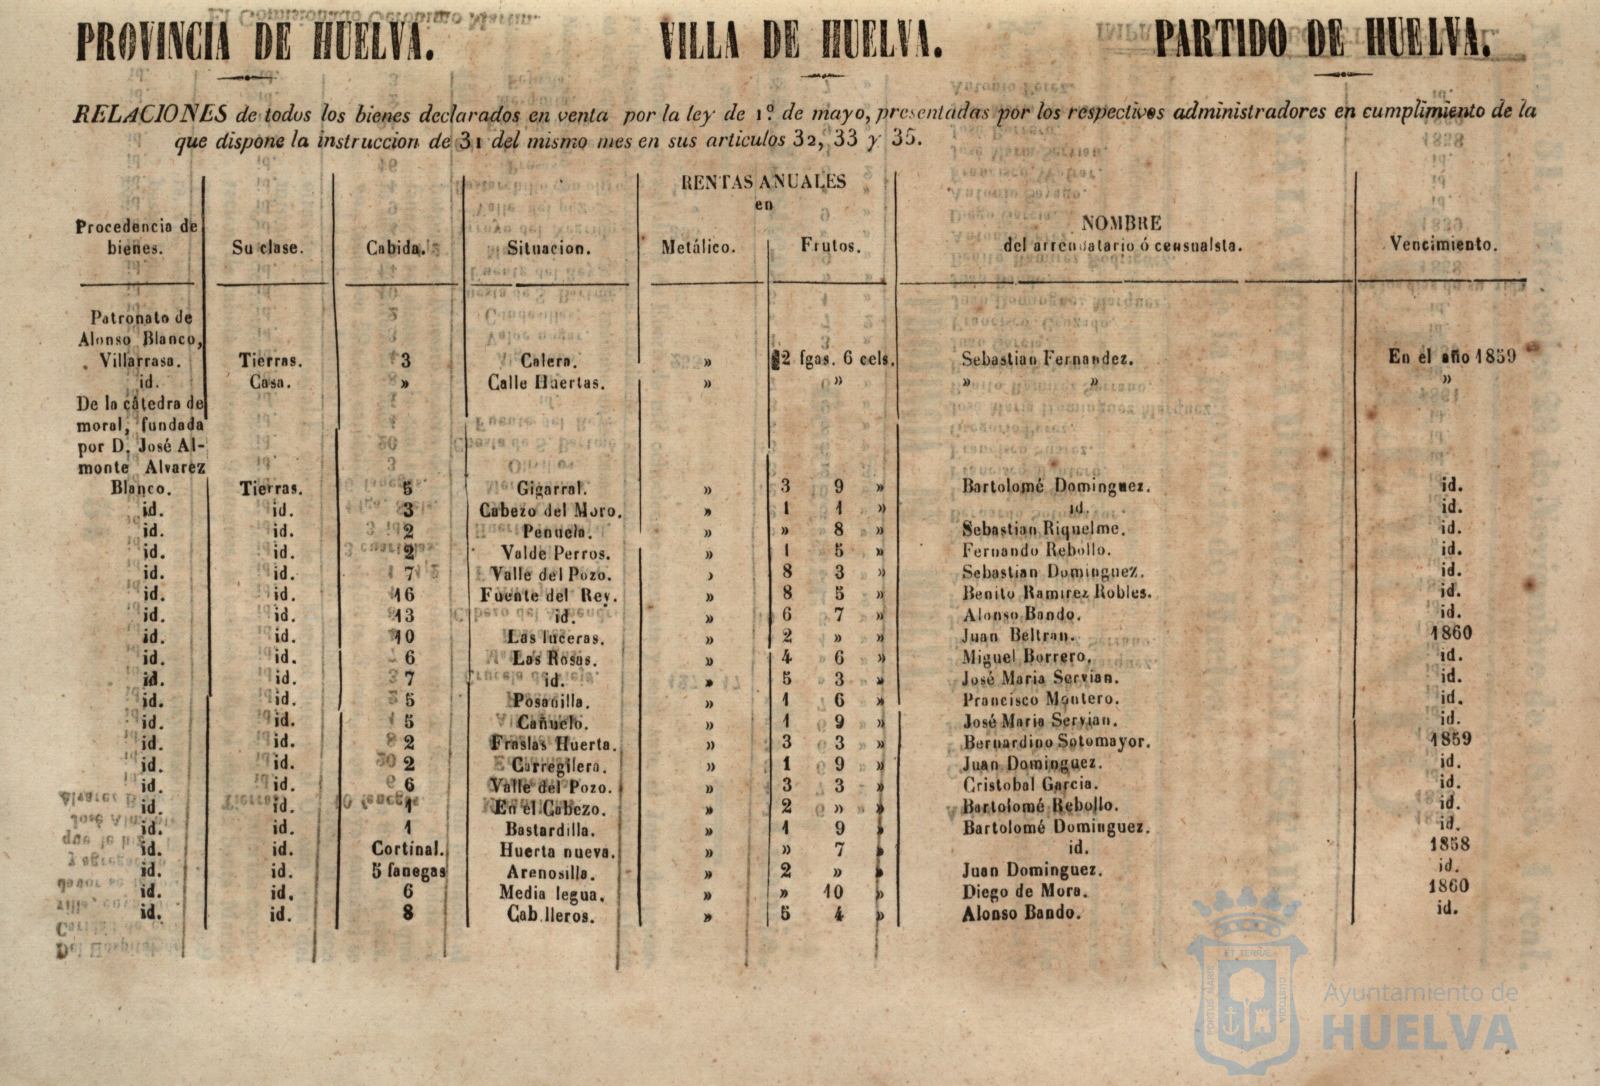 PROVINCIA DE HUELVA. VILLA DE HUELVA. PARTIDO DE HUELVA.
RELACIONES de todos los bienes declarados en venta por la ley de 1º. de mayo, presentadas por los respectivos administradores en cumplimiento de la
que dispone la instruccion de 31 del mismo mes en sus articulos 32, 33 y 35.
RENTAS ANUALES
en
Procedencia de bienes. Su clase. Cabida. Situacion. Metálico. Frutos. NOMBRE del arrendatario ó censualista. Vencimiento.
Patronato de
Alonso Blanco,
Villarrasa. Tierras. 3 Calera. » 2 fgas. 6 cels. Sebastian Fernandez. En el año 1859
id. Casa. » Calle Huertas. » » » » »
De la cátedra de
moral, fundada
por D. José Al-
monte Alvarez
Blanco. Tierras. 5 Gigarral. » 3 9 » Bartolomé Dominguez. id.
id. id. 3 Cabezo del Moro. » 1 1 » id. id.
id. id. 2 Penuela. » » 8 » Sebastian Riquelme. id.
id. id. 2 Valde Perros. » 1 5 » Fernando Rebollo. id.
id. id. 7 Valle del Pozo. » 8 3 » Sebastian Dominguez. id.
id. id. 16 Fuente del Rey. » 8 5 » Benito Ramirez Robles. id.
id. id. 13 id. » 6 7 » Alonso Bando. id.
id. id. 10 Las luceras. » 2 » » Juan Beltran. 1860
id. id. 6 Las Rosas. » 4 6 » Miguel Borrero. id.
id. id. 7 id. » 5 3 » José Maria Servian. id.
id. id. 5 Posadilla. » 1 6 » Prancisco Montero. id.
id. id. 5 Cañuelo. » 1 9 » José Maria Servian. id.
id. id. 2 Fraslas Huerta. » 3 3 » Bernardino Sotomayor. 1859
id. id. 2 Corregilera. » 1 9 » Juan Dominguez. id.
id. id. 6 Valle del Pozo. » 3 3 » Cristobal Garcia. id.
id. id. 1 En el Cabezo. » 2 » » Bartolomé Rebollo. id.
id. id. 1 Bastardilla. » 1 9 » Bartolomé Dominguez. id.
id. id. Cortinal. Huerta nueva. » » 7 » id. 1858
id. id. 5 fanegas Arenosilla. » 2 » » Juan Dominguez. id.
id. id. 6 Media legua. » » 10 » Diego de Mora. 1860
id. id. 8 Cab.lleros. » 5 4 » Alonso Bando. id.
Ayuntamiento de
HUELVA